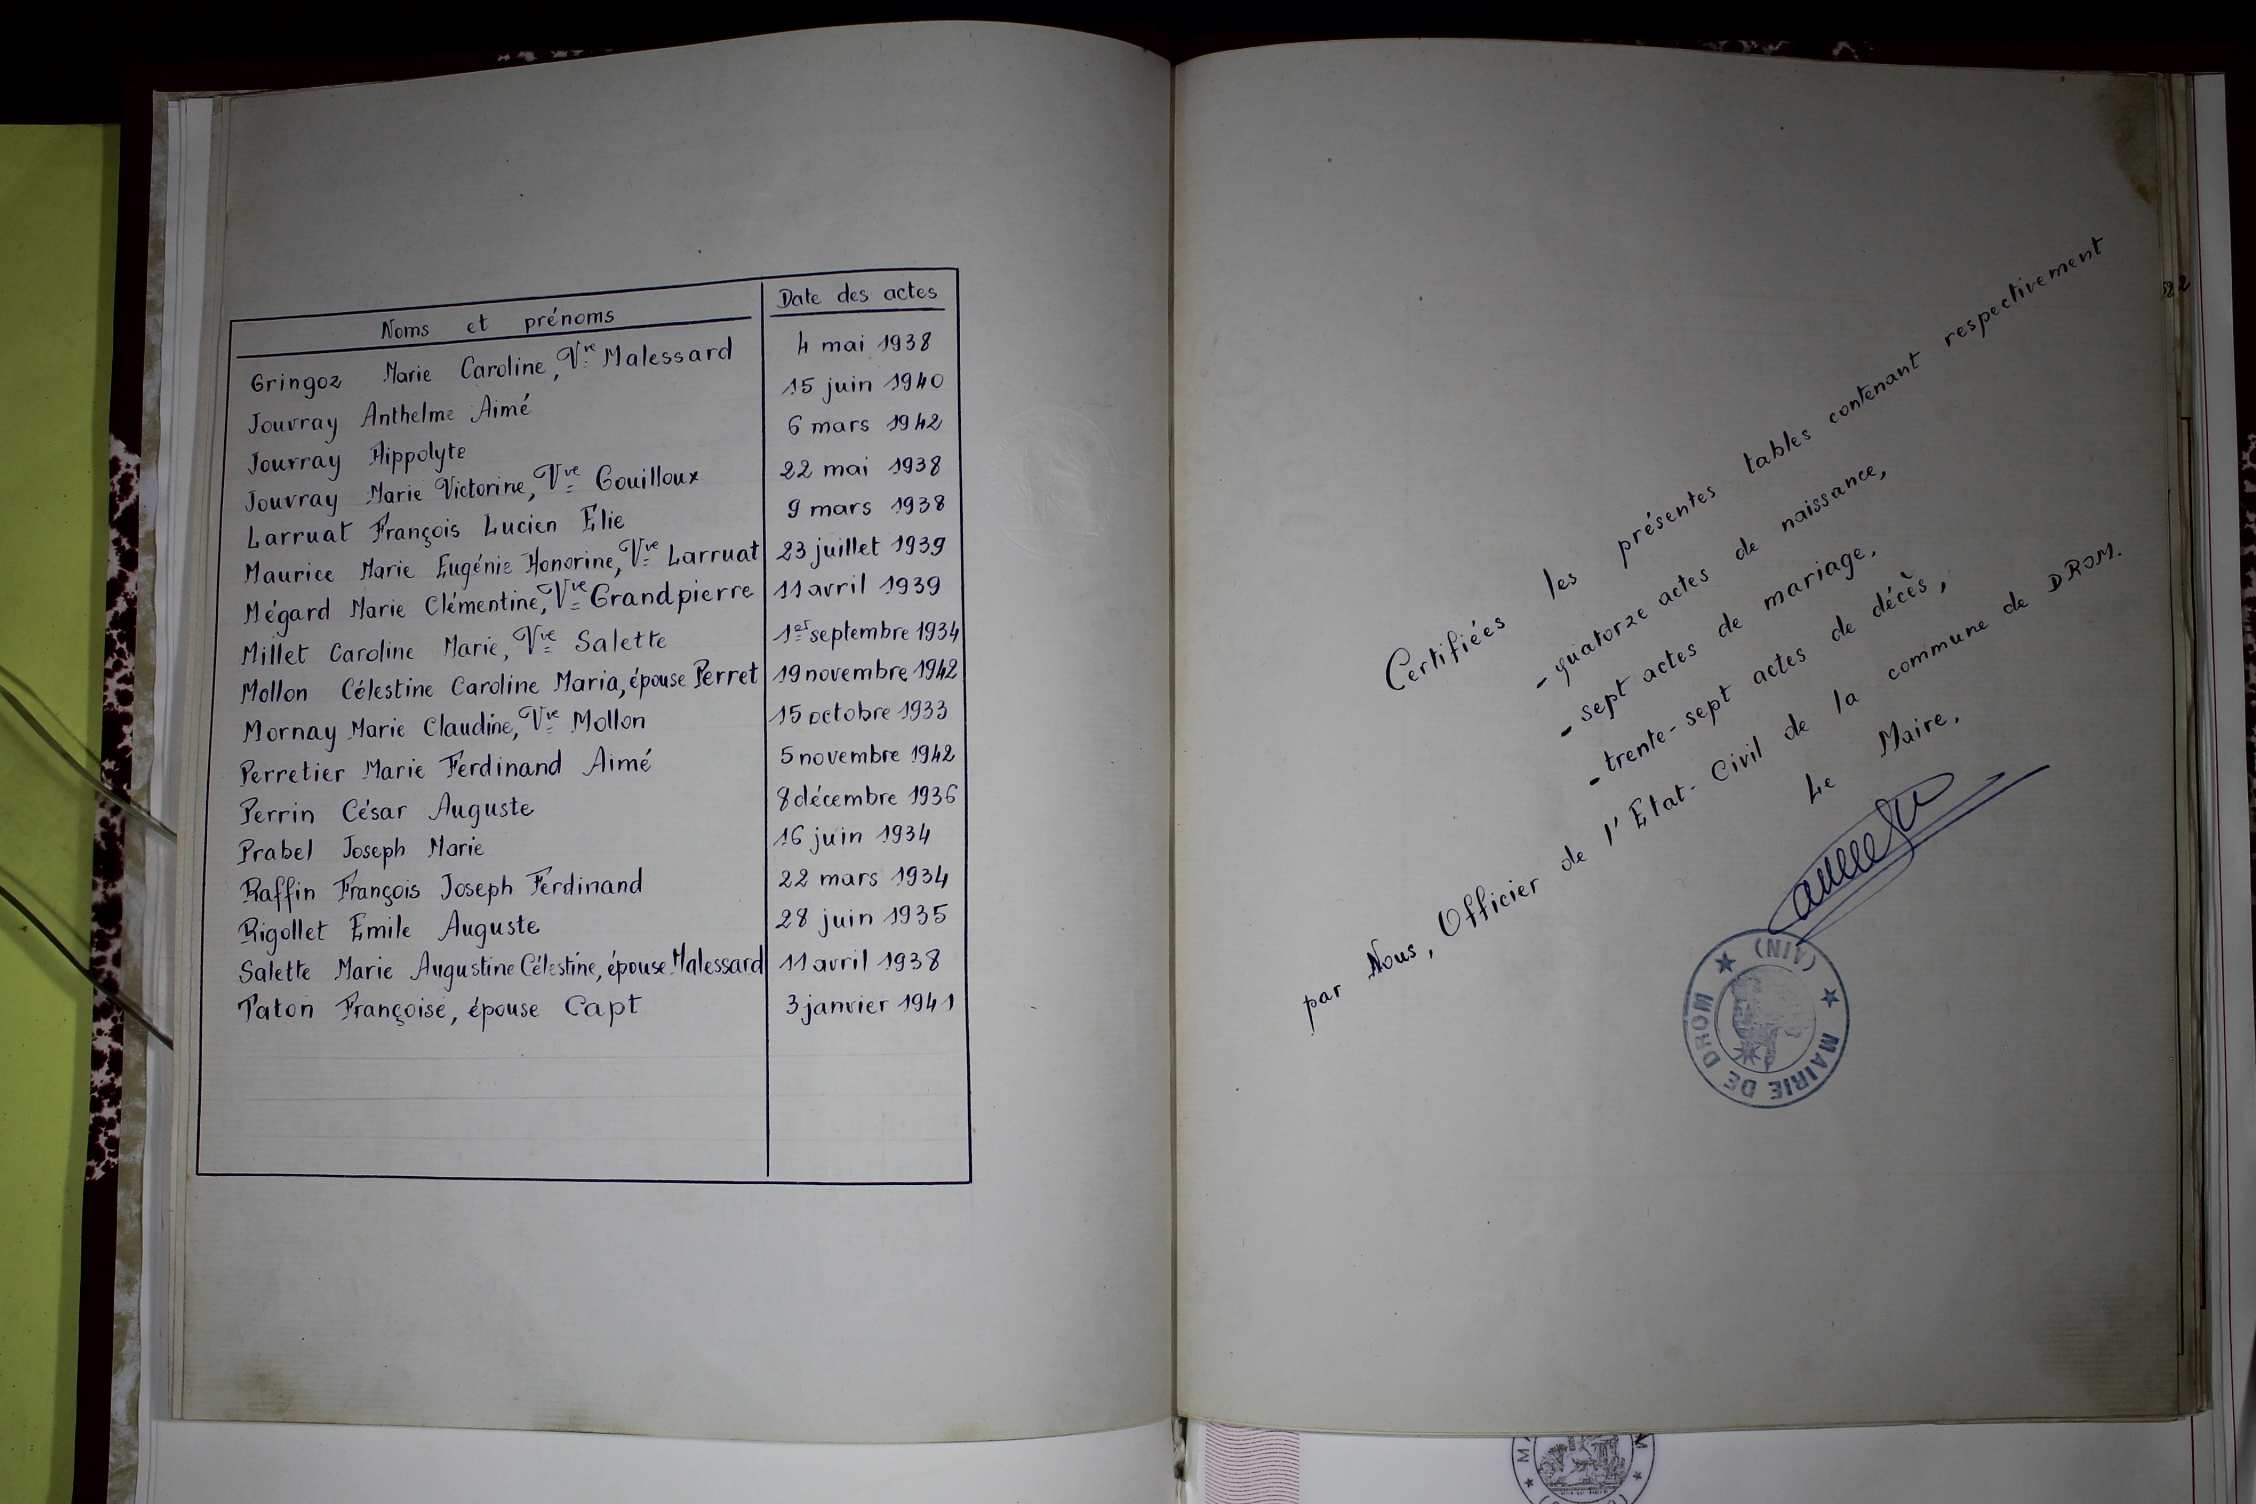 Noms et prénoms | Date des actes
Gringoz Marie Caroline, Vve Malessard | 4 mai 1938
Jouvray Anthelme Aimé | 15 juin 1940
Jouvray Hippolyte | 6 mars 1942
Jouvray Marie Victorine, Vve Gouilloux | 22 mai 1938
Larruat François Lucien Elie | 9 mars 1938
Maurice Marie Eugénie Honorine, Vve Larruat | 23 juillet 1939
Mégard Marie Clémentine, Vve Grandpierre | 11 avril 1939
Millet Caroline Marie, Vve Salette | 1er septembre 1934
Mollon Célestine Caroline Maria, épouse Perret | 19 novembre 1942
Mornay Marie Claudine, Vve Mollon | 15 octobre 1933
Perretier Marie Ferdinand Aimé | 5 novembre 1942
Perrin César Auguste | 8 décembre 1936
Prabel Joseph Marie | 16 juin 1934
Raffin François Joseph Ferdinand | 22 mars 1934
Rigollet Emile Auguste | 28 juin 1935
Salette Marie Augustine Célestine, épouse Malessard | 11 avril 1938
Taton Françoise, épouse Capt | 3 janvier 1941
Certifiées les présentes tables contenant respectivement
- quatorze actes de naissance,
- sept actes de mariage,
- trente-sept actes de décès,
par Nous, Officier de l'Etat-Civil de la commune de DROM.
Le Maire,
MAIRIE DE DROM
(AIN)